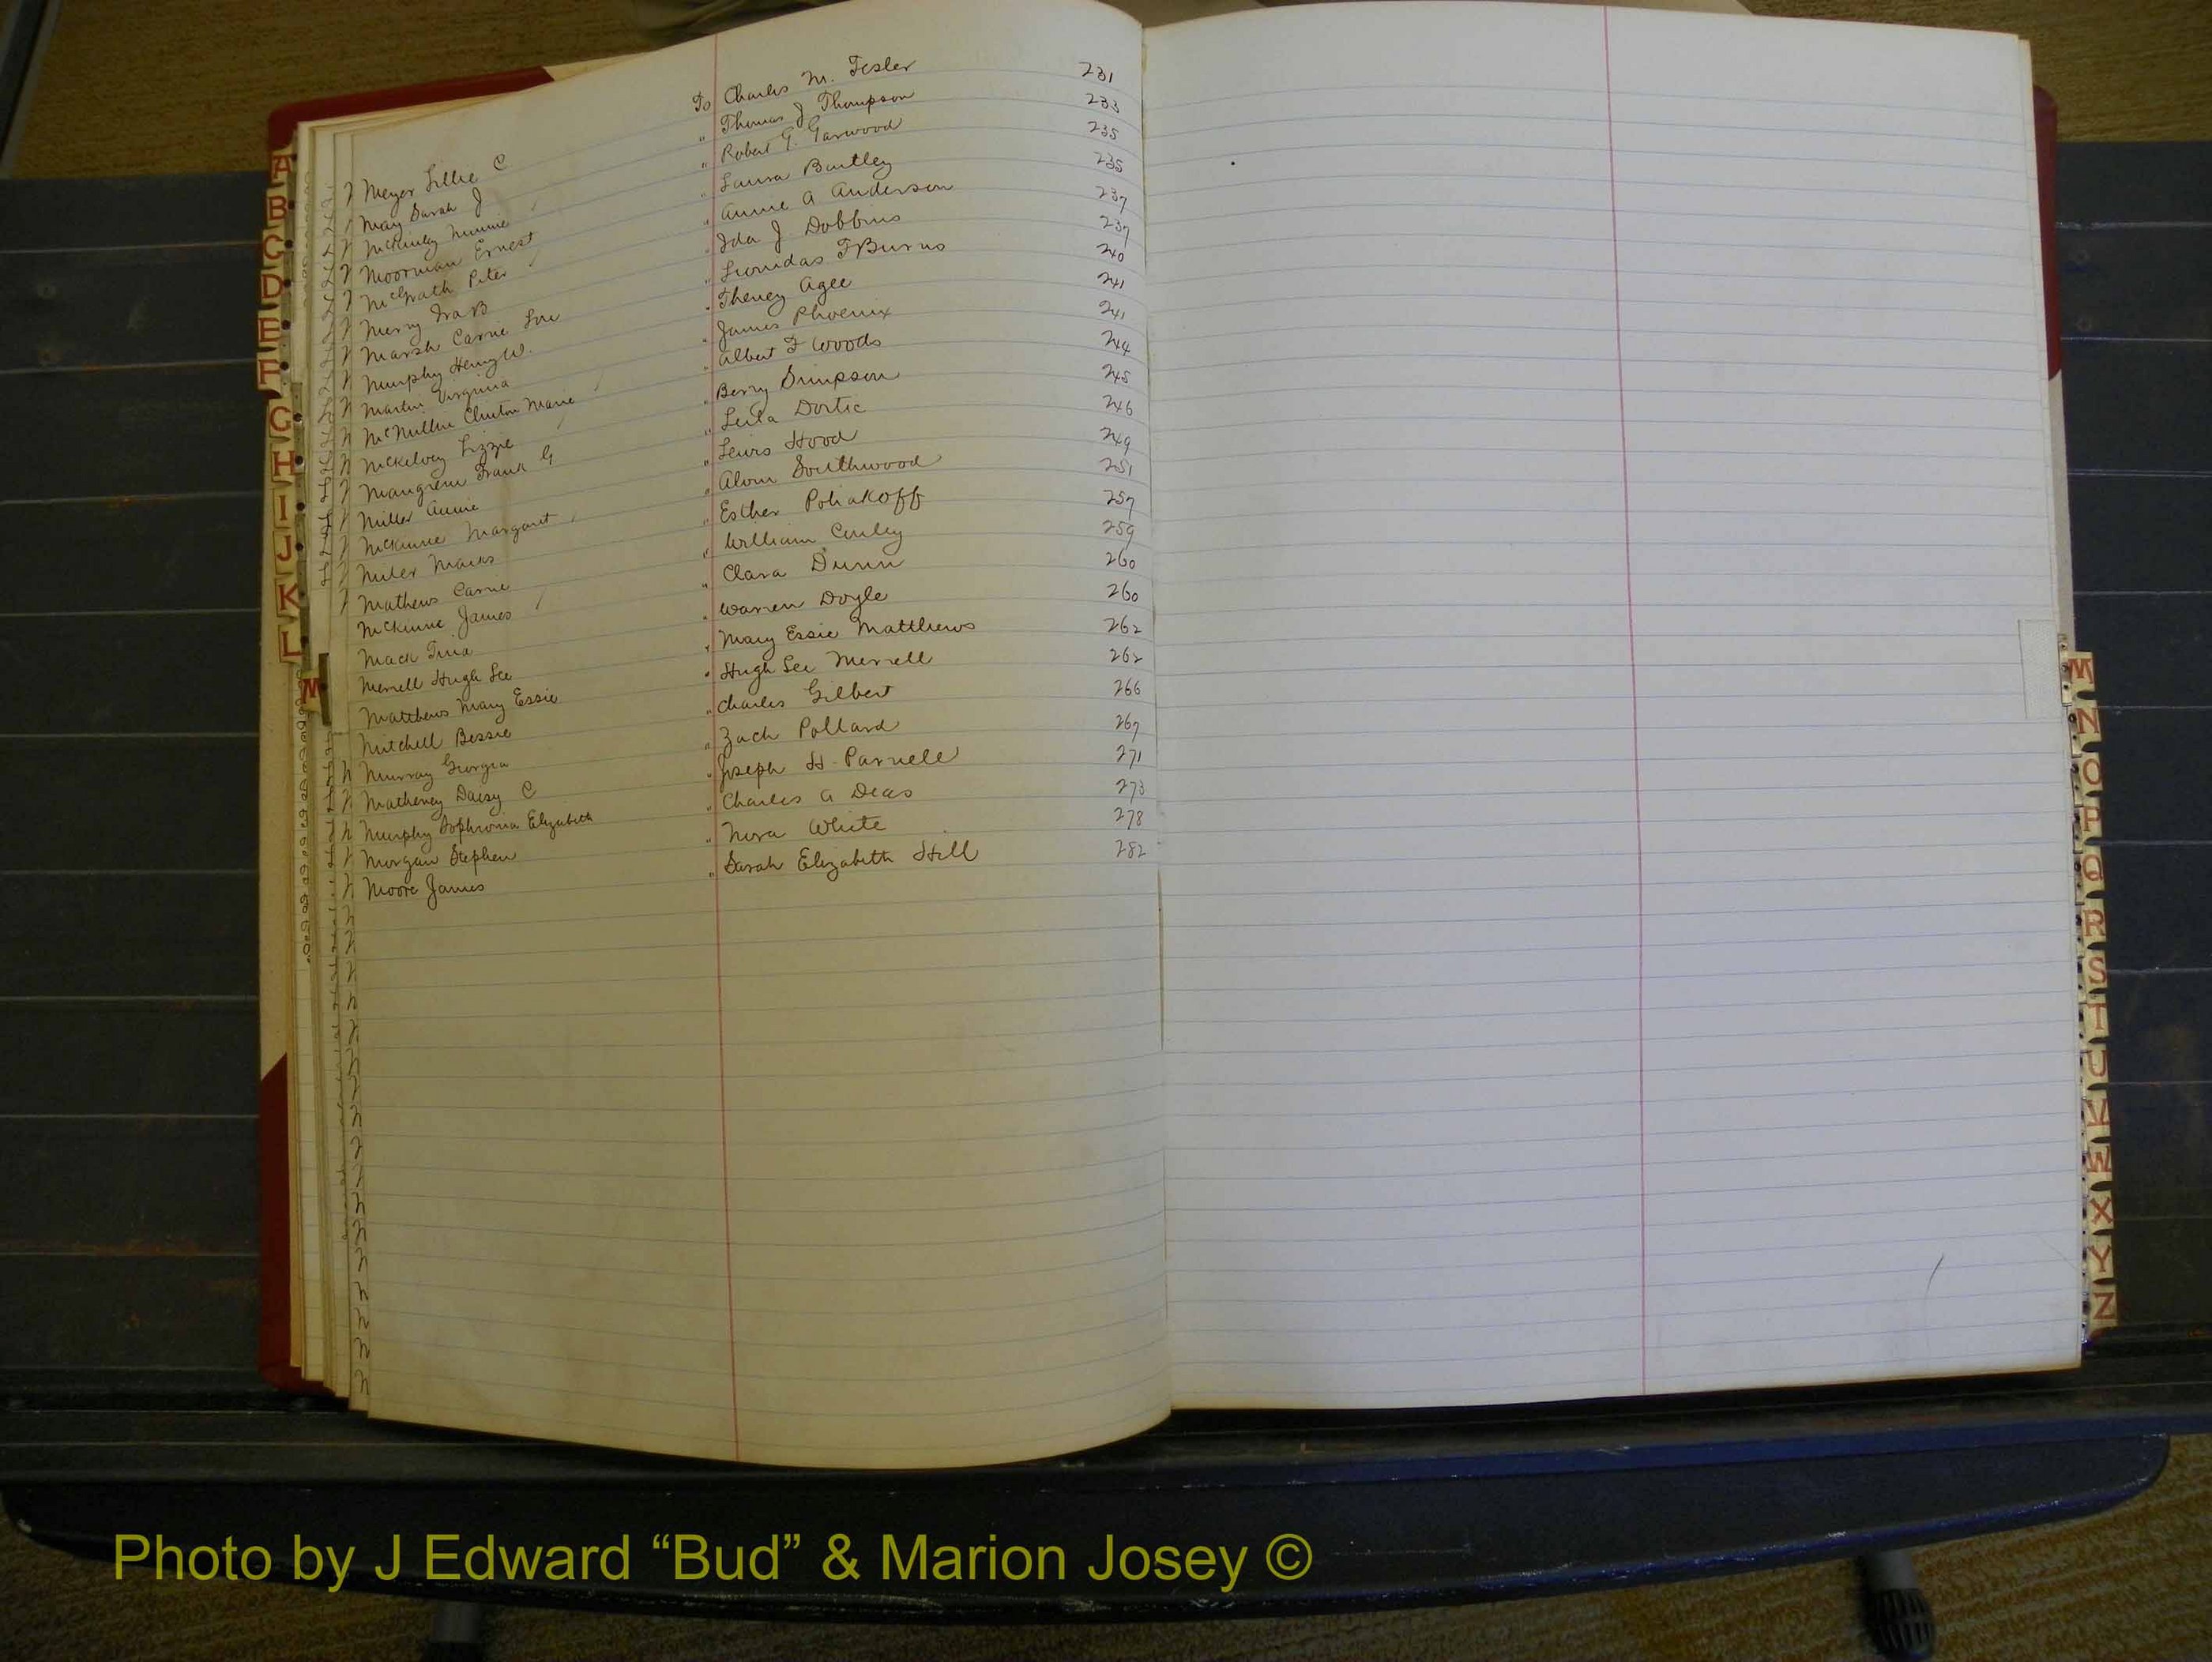 Meyer Lillie C To Charles M. Tesler 231
May Sarah J " Thomas J Thompson 233
McKinley Minnie " Robert G. Garwood 235
Moorman Ernest " Laura Bartley 235
McGrath Peter " Annie A Anderson 237
Merry Ira B " Ida J Dobbins 237
Marsh Carrie Lou " Leonidas F Burns 240
Murphy Henry W. " Theney Agee 241
Martin Virginia " James Phoenix 241
Marie " Albert F Woods 244
McKelvey Lizzie " Berry Simpson 245
Mangrem Frank G " Leila Dortic 246
Miller Annie " Lewis Hood 249
McKinnie Margaret " Alvin Southwood 251
Miler Marks " Esther Poliakoff 257
Mathews Carrie " William Curley 259
McKinne James " Clara Dunn 260
Mack Tina " Warren Doyle 260
Merrell Hugh Lee " Mary Essie Matthews 262
Matthews Mary Essie " Hugh Lee Merrell 262
Mitchell Bessie " Charles Gilbert 266
Murray Georgia " Zach Pollard 267
Matheney Daisy C " Joseph H. Parnele 271
Murphy Sophronia Elizabeth " Charles A Deas 273
Morgan Stephen " Nora White 278
Moore James " Sarah Elizabeth Hill 282
A
B
C
D
E
F
G
H
I
J
K
L
M
M
N
O
P
Q
R
S
T
U
V
W
X
Y
Z
Photo by J Edward “Bud” & Marion Josey ©